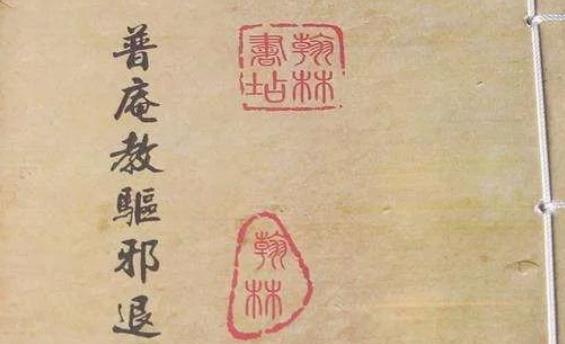 普庵教驅邪退
翰林書站
翰林